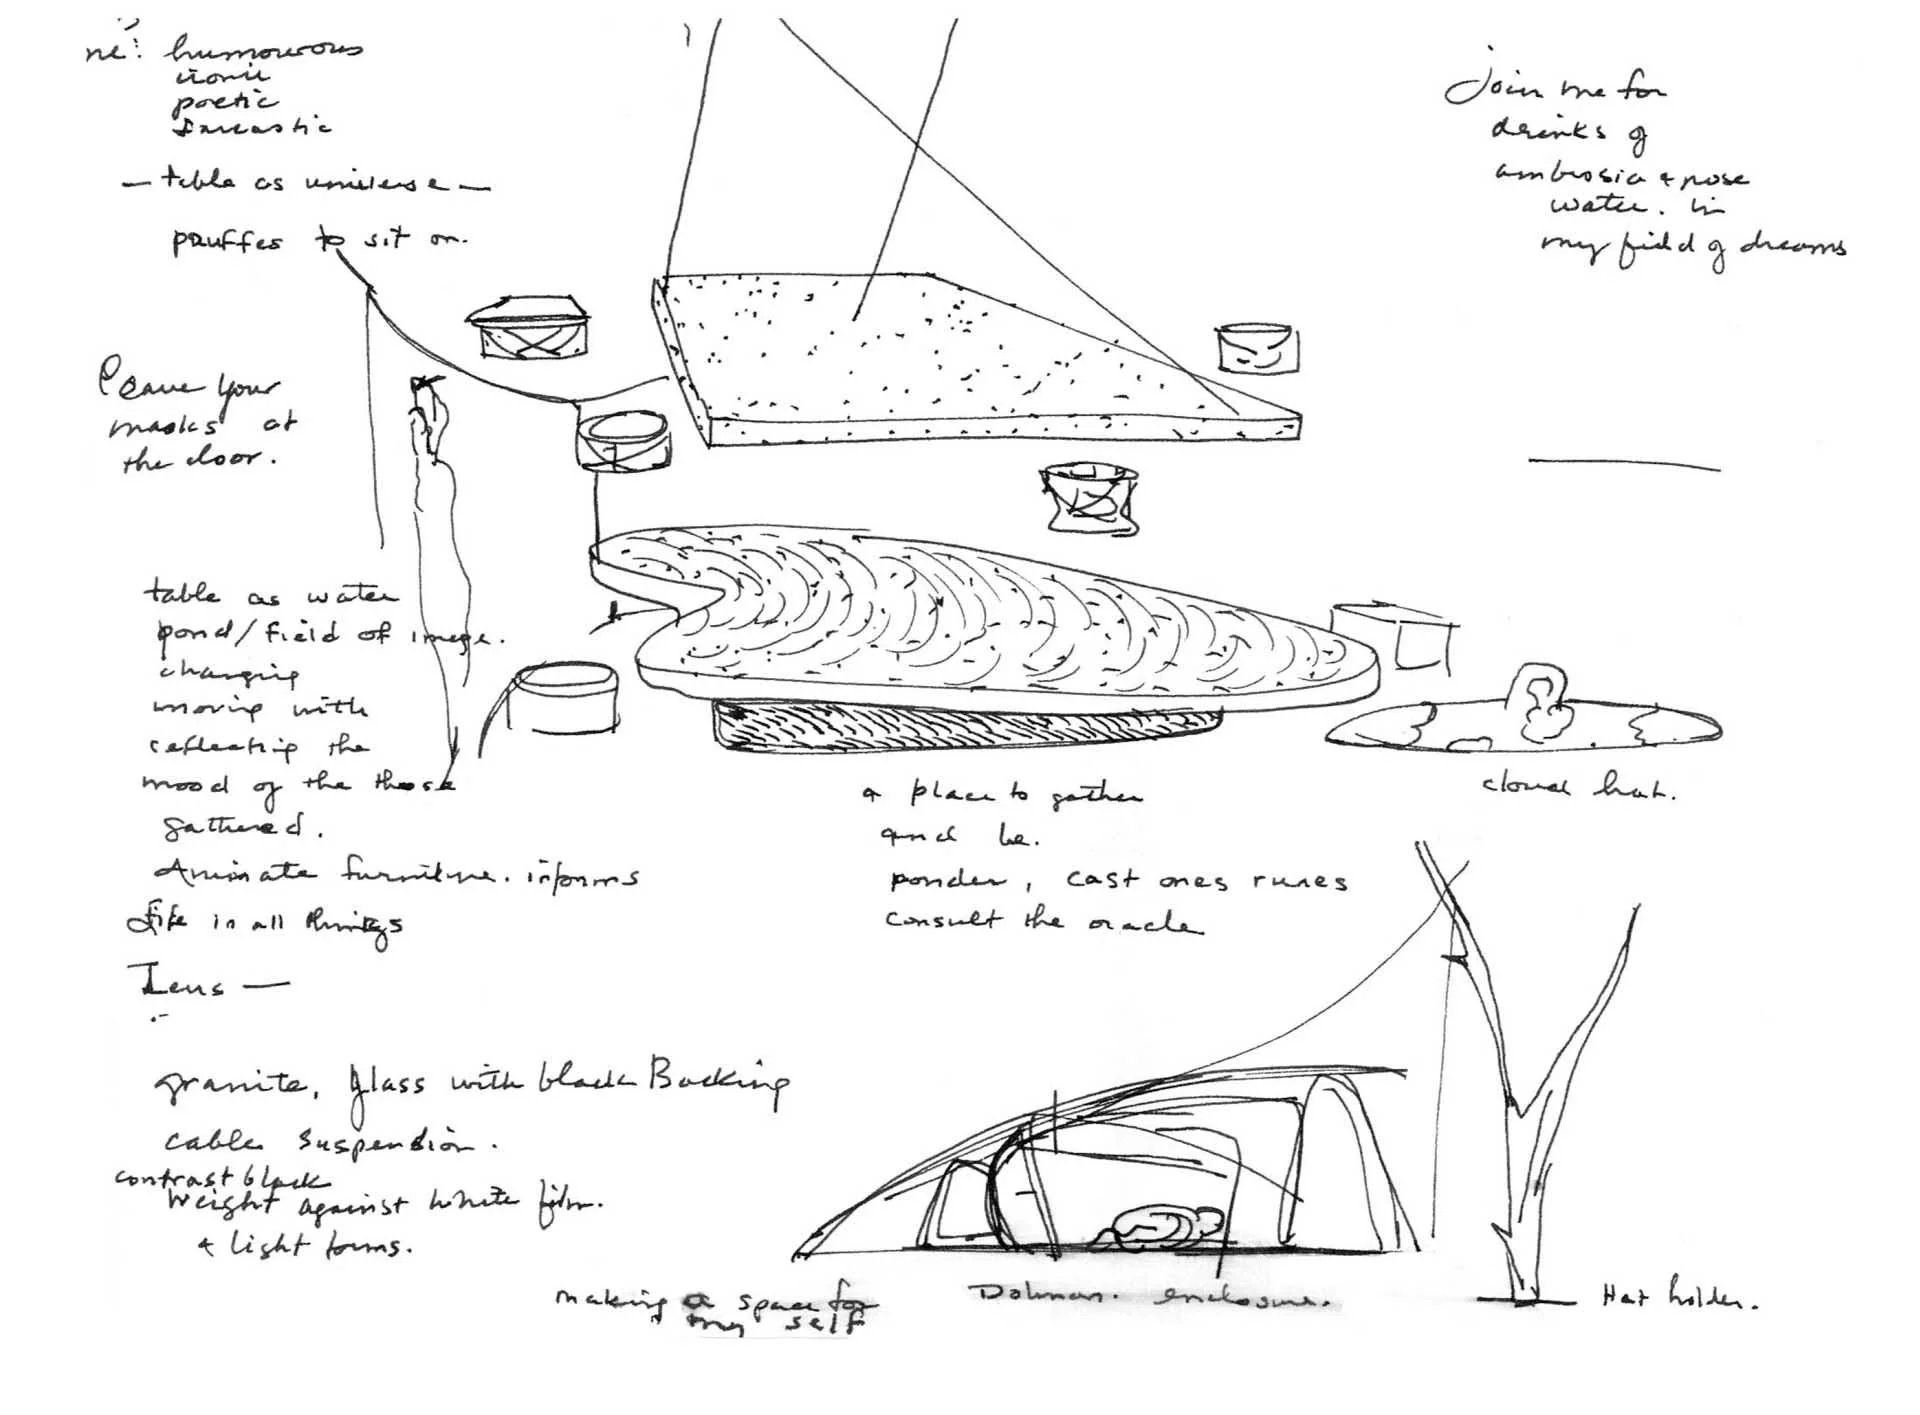 ne: humourous
ironic
poetic
sarcastic
— table as universe —
pouffes to sit on.
Join me for
drinks of
ambrosia + rose
water. in
my field of dreams
Leave your
masks at
the door.
table as water
pond/field of image.
changing
moving with
reflecting the
mood of the those
gathered.
Animate furniture. informs
life in all things
Lens —
cloud hat.
a place to gather
and be.
ponder, cast ones runes
consult the oracle
granite, glass with black Backing
cable suspension.
contrast black
weight against white film.
+ light forms.
making a space for
my self
Dolman. enclosure.
Hat holder.